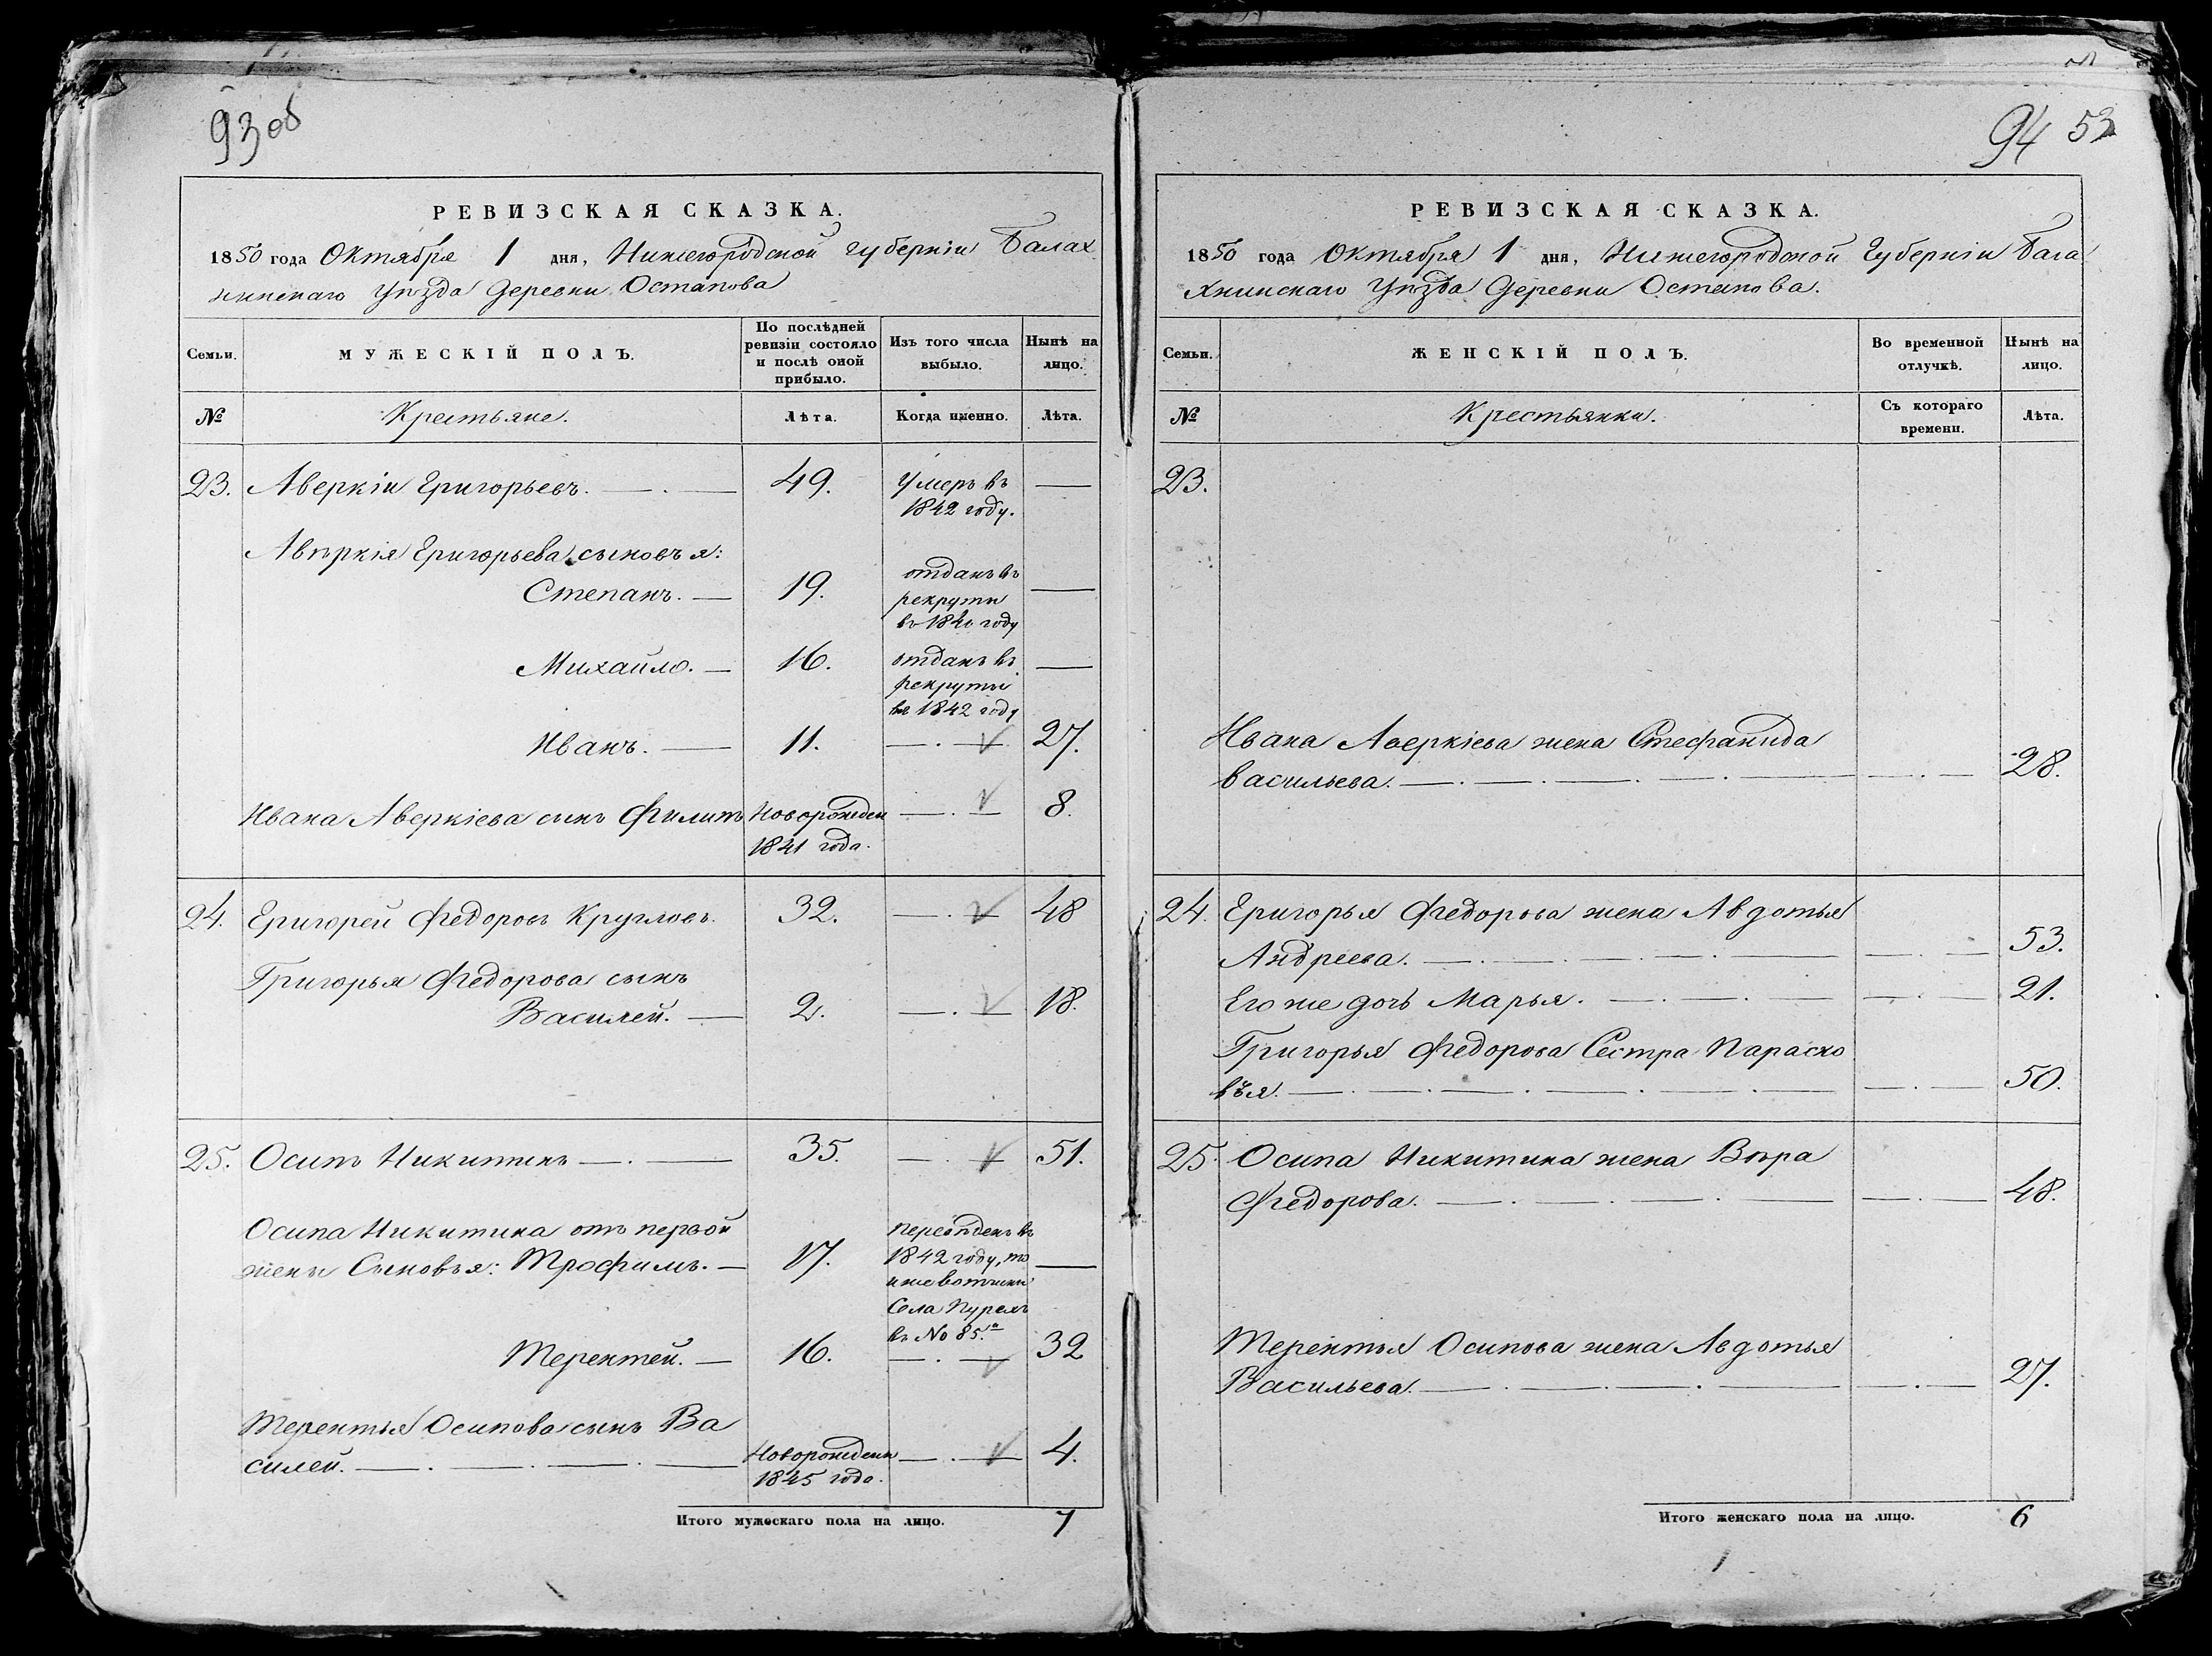 93 об
РЕВИЗСКАЯ СКАЗКА.
1850 года Октября 1 дня, Нижегородской губерніи Балах
нинскаго Уѣзда Деревни Остапова
Семьи. МУЖЕСКІЙ ПОЛЪ. По послѣдней ревизіи состояло и послѣ оной прибыло. Изъ того числа выбыло. Нынѣ на лицо.
№ Крестьяне. Лѣта. Когда именно. Лѣта.
23. Аверкіи Григорьевъ. 49. Умеръ въ —
1842 году.
Авѣркія Григорьева сыновья:
Степанъ. — 19. отданъ въ —
рекруты
въ 1840 году
Михайло. — 16. отданъ въ —
рекруты
въ 1842 году
Иванъ. — 11. — . — 27.
Ивана Аверкіева сынъ Филипъ Новорожден — . — 8.
1841 года.
24. Григорей Федоровъ Кругловъ. 32. — . — 48
Григорья Федорова сынъ
Василей. — 2. — . — 18.
25. Осипъ Никитинъ — . — 35. — . — 51.
Осипа Никитина отъ первой Переведенъ въ
жены Сыновья: Трофимъ. — 17. 1842 году, то —
иже вотчины
Села Пурехъ
въ № 85.
Терентей. — 16. — . — 32
Терентья Осипова сынъ Ва
силей. — . — . — . — Новорожденъ — . — 4.
1845 года.
Итого мужескаго пола на лицо. 7
94 53
РЕВИЗСКАЯ СКАЗКА.
1850 года Октября 1 дня, Нижегородской Губерніи Бала
хнинскаго Уѣзда Деревни Остапова.
Семьи. ЖЕНСКІЙ ПОЛЪ. Во временной отлучкѣ. Нынѣ на лицо.
№ Крестьянки. Съ котораго времени. Лѣта.
23.
Ивана Аверкіева жена Стефанида
Васильева. — . — . — . — . — — . — 28.
24. Григорья Федорова жена Авдотья
Андреева. — . — . — . — . — — . — 53.
Его же дочь Марья. — . — . — — . — 21.
Григорья Федорова Сестра Параско
вѣя. — . — . — . — . — . — — . — 50.
25. Осипа Никитина жена Вѣра
Федорова. — . — . — . — — . — 48.
Терентья Осипова жена Авдотья
Васильева. — . — . — . — — . — 27.
Итого женскаго пола на лицо. 6